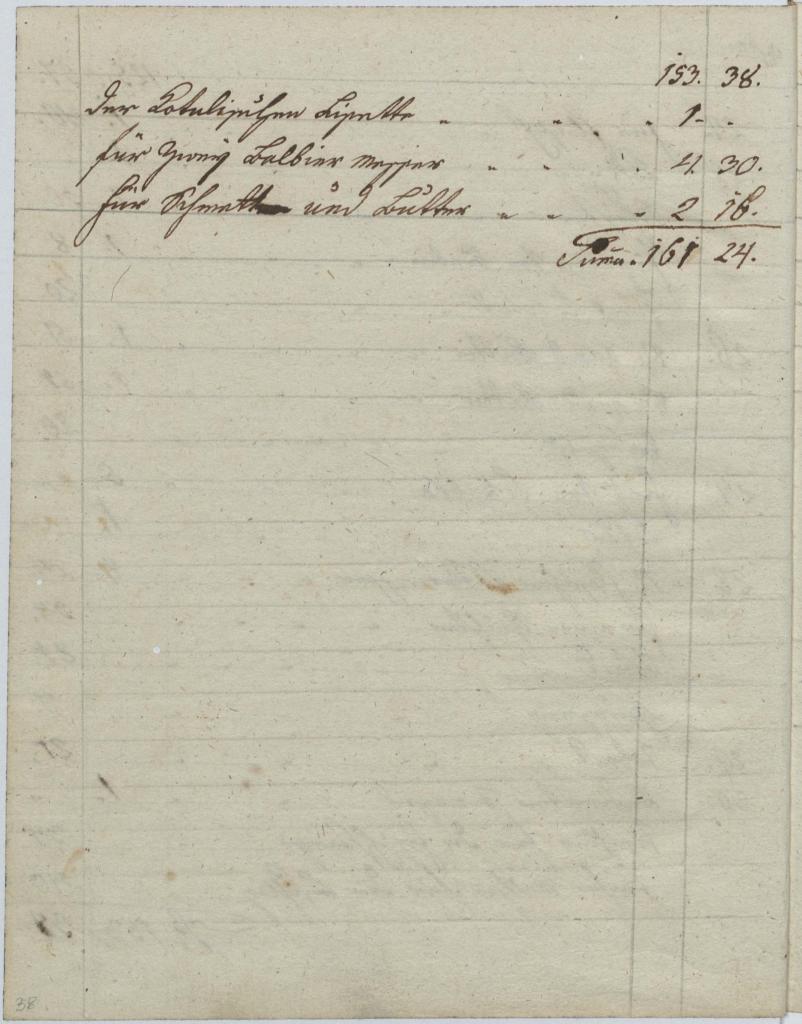 153. 38.
der Kotulischen Lisette " " " " 1 - "
für Zweÿ Balbier Messer " " " 4. 30.
für Schmett und Butter " " " 2 16.
Suma. 161 24.
38